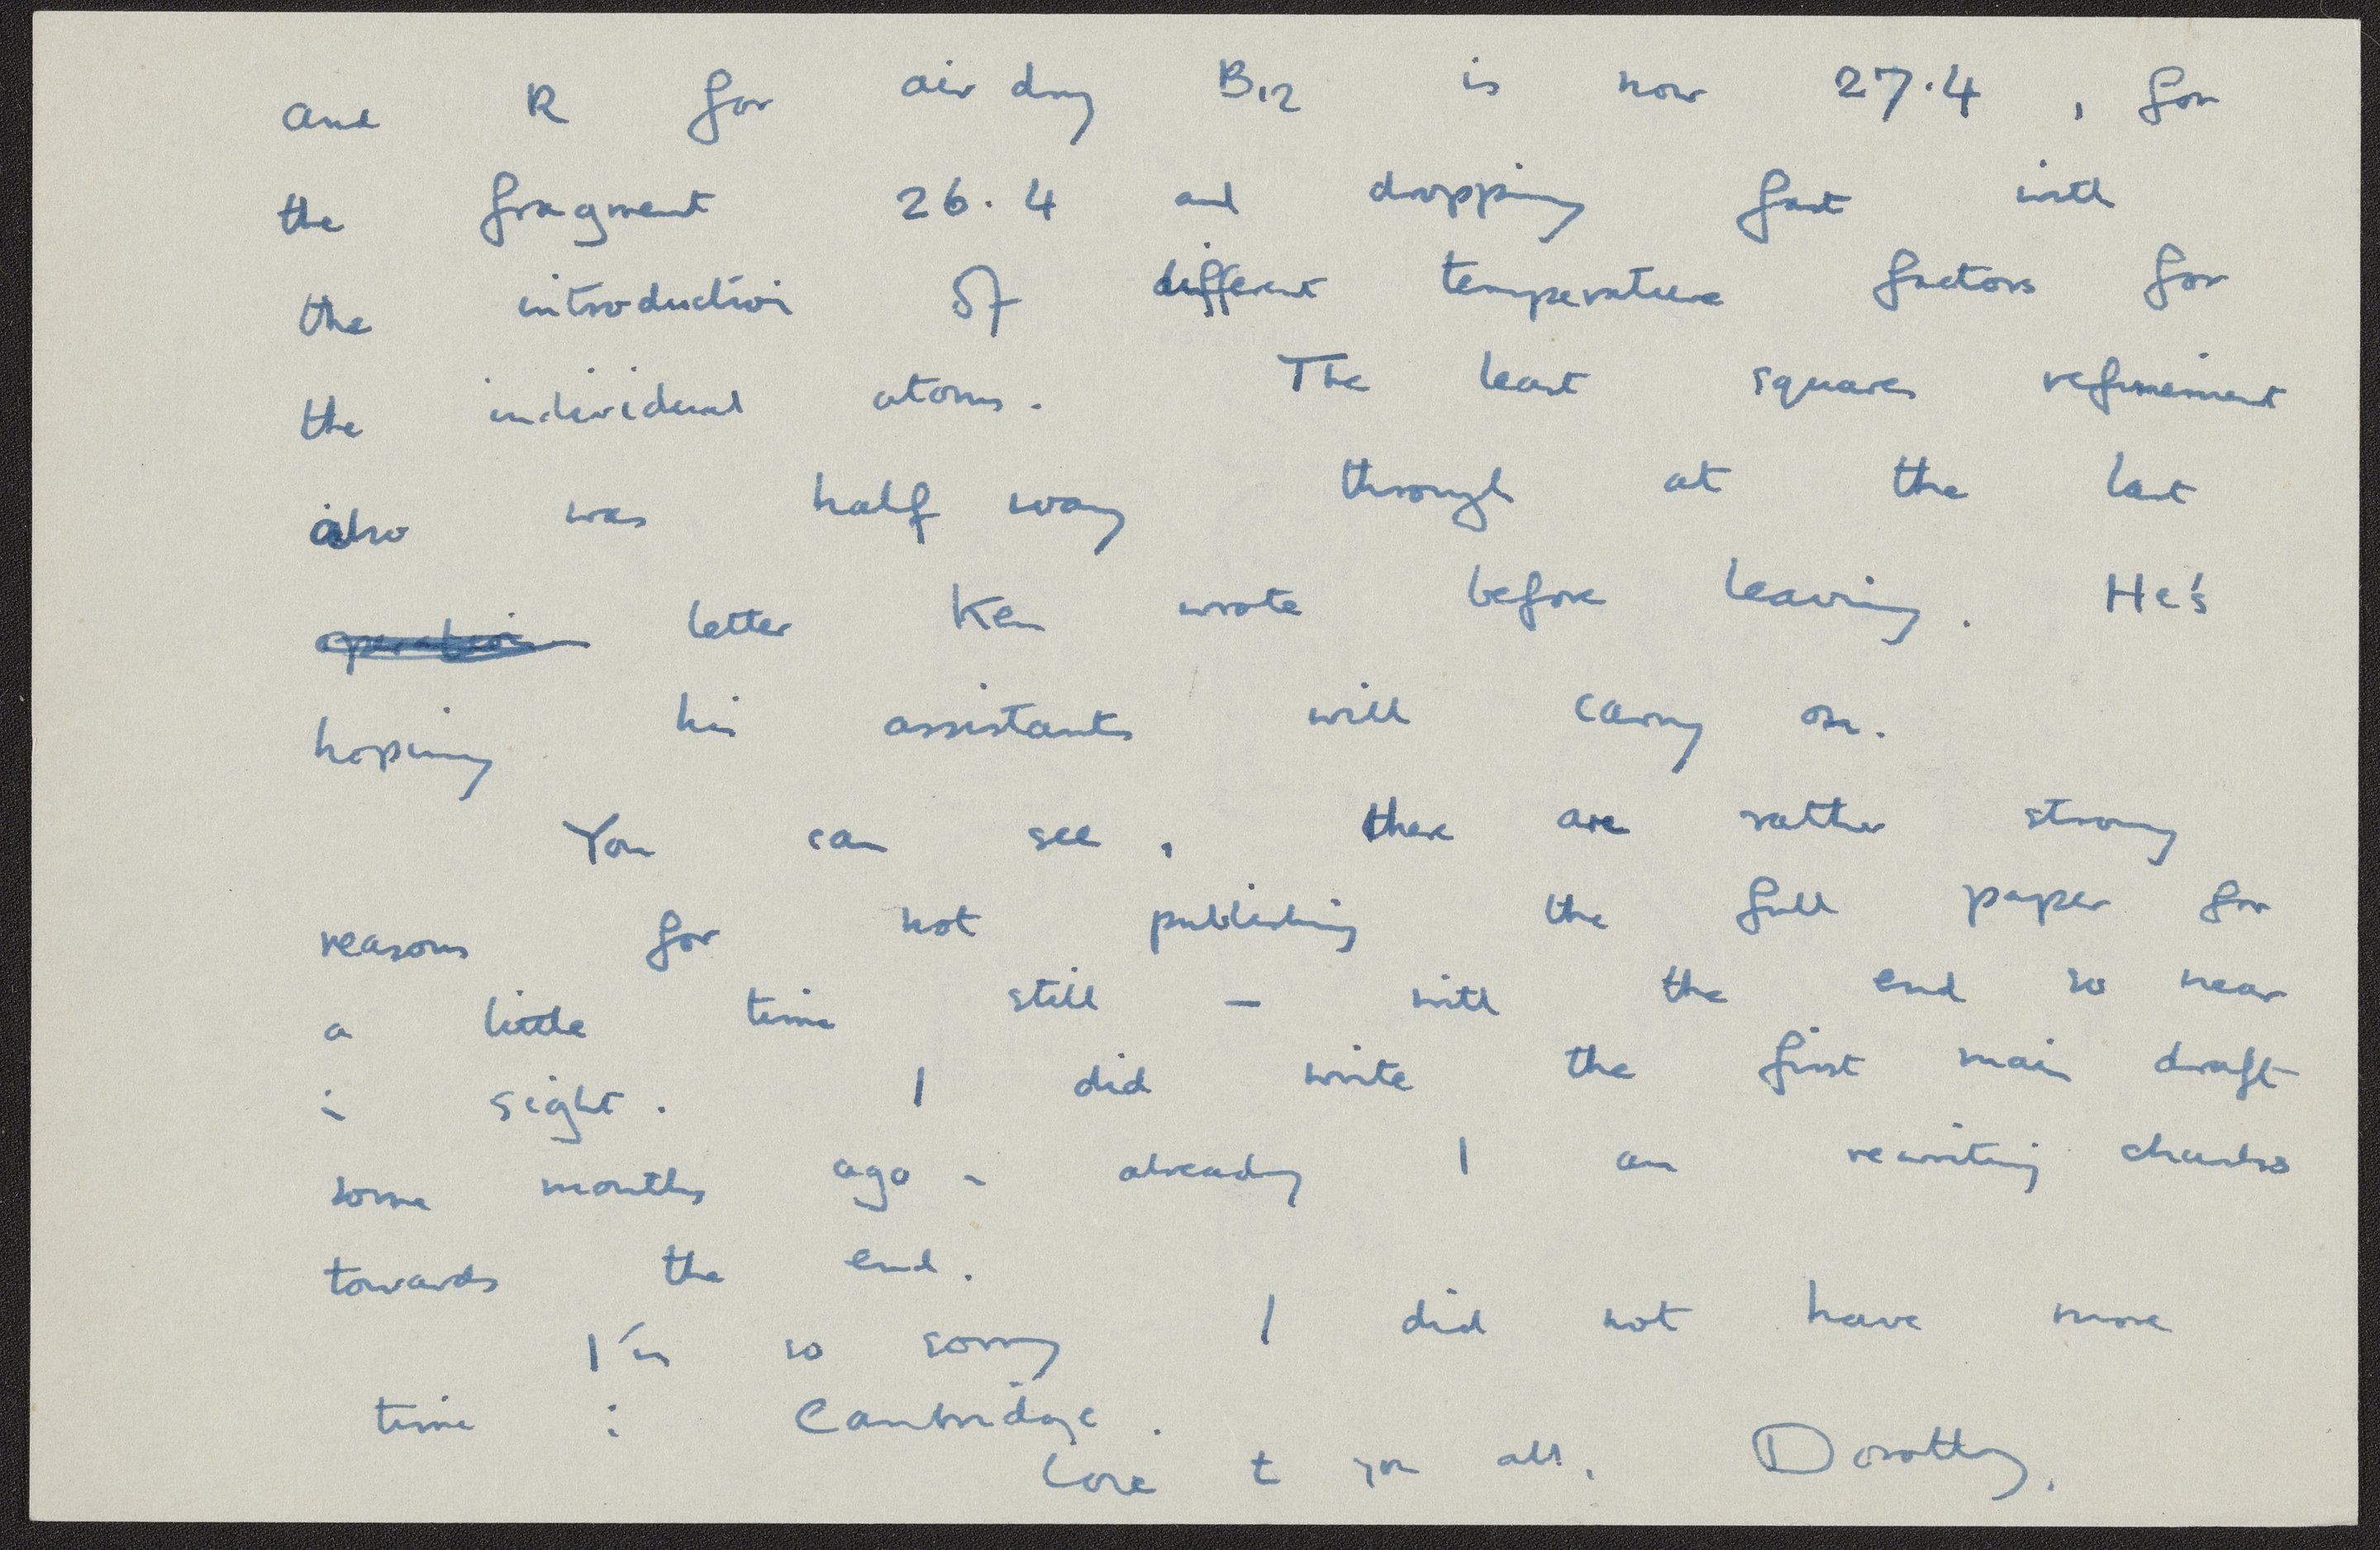 and R for air dry B12 is now 27.4, for
the fragment 26.4 and dropping fast with
the introduction of different temperature factors for
the individual atoms. The least squares refinement
also was half way through at the last
operation letter Ken wrote before leaving. He's
hoping his assistants will carry on.
You can see, there are rather strong
reasons for not publishing the full paper for
a little time still - with the end so near
in sight. I did write the first main draft
some months ago - already I am rewriting chunks
towards the end.
I'm so sorry I did not have more
time in Cambridge.
Love to you all, Dorothy.